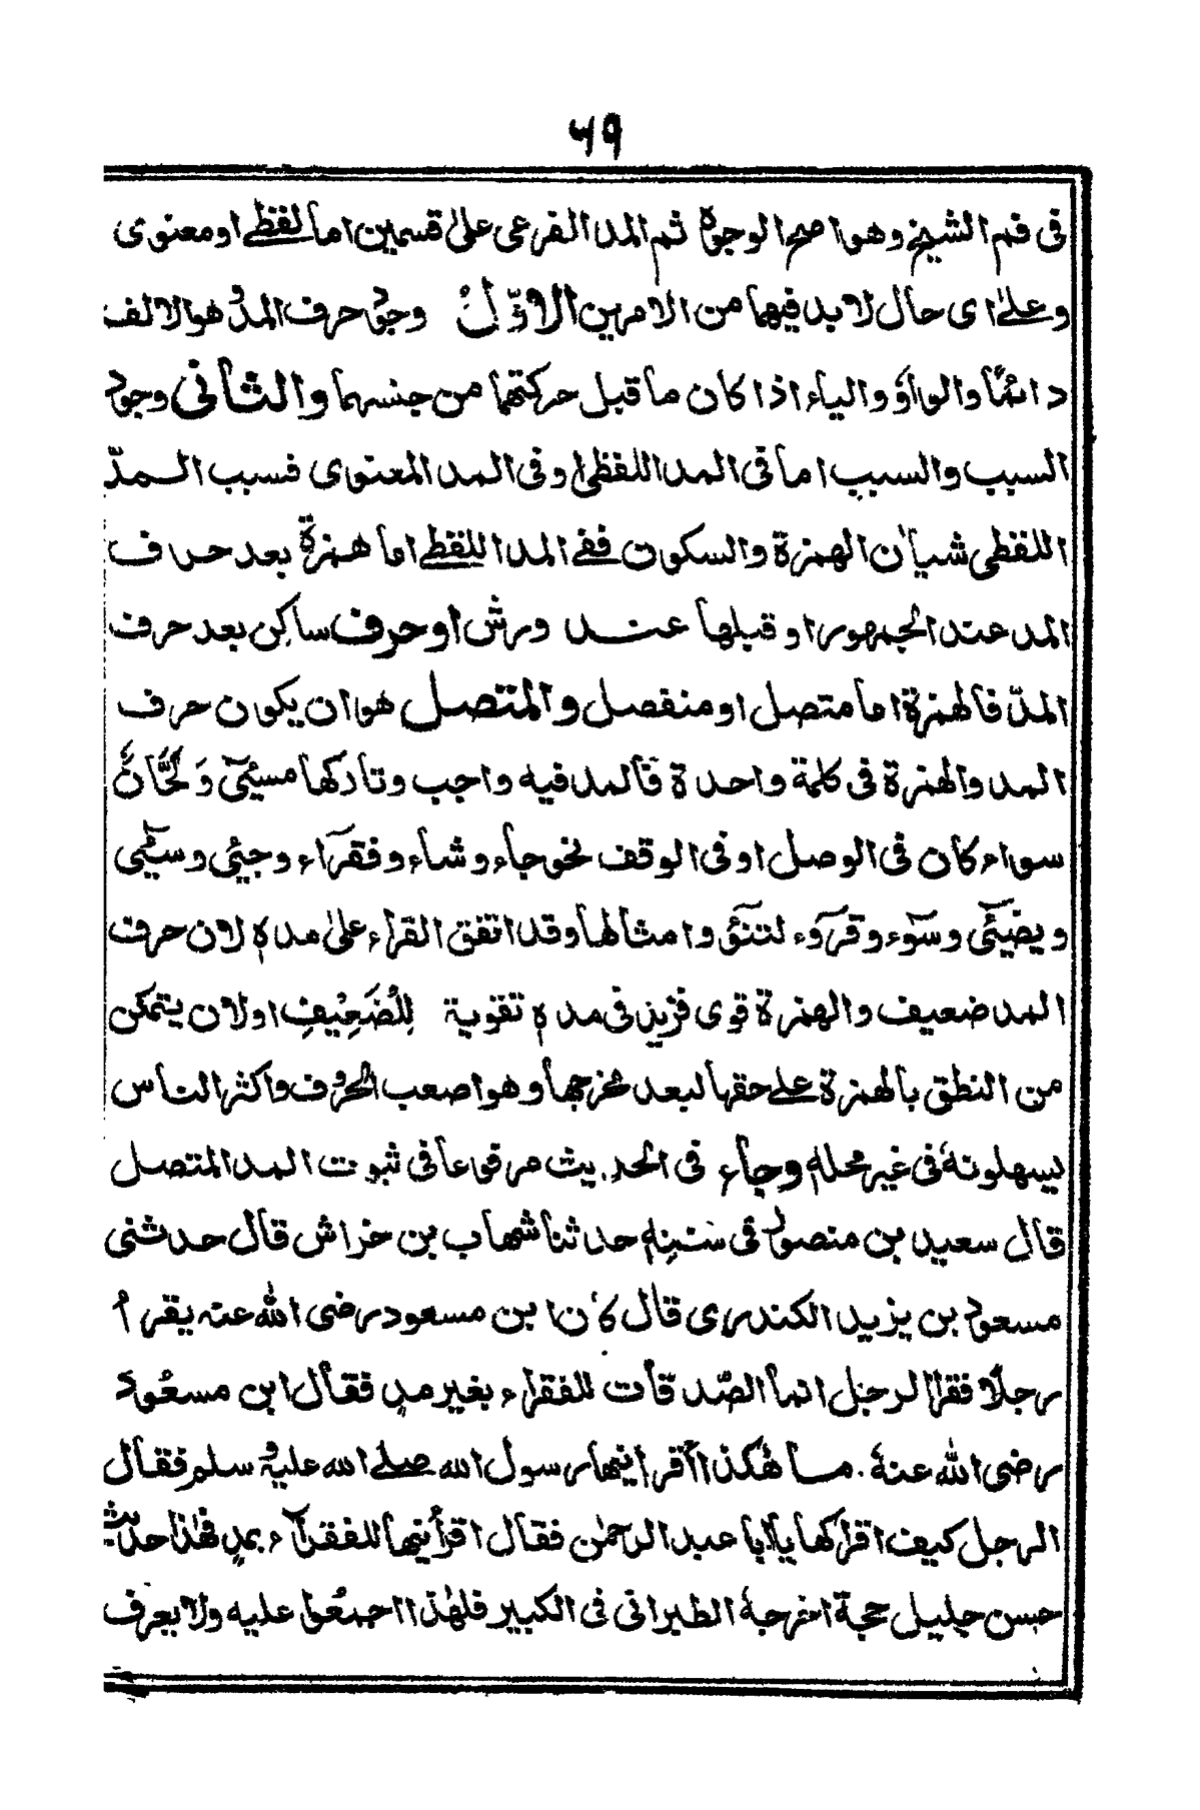 ٥٩
فی فم الشیخ وهو اصح الوجوه ثم المد الفرعی علیٰ قسمین اما لفظے او معنوی
وعلےٰ ای حال لا بد فیهما من الامرین الاوّلُ وجود حرف المد وهو الالف
دائمًا والواو والیاء اذا کان ما قبل حرکتهما من جنسهما والثانی وجود
السبب والسبب اما فی المد اللفظی او فی المد المعنوی فسبب المدّ
اللفظی شیاٰن الهمزة والسکون ففے المد اللفظے اما همزة بعد حرف
المد عند الجمهور او قبلها عند ورش او حرف ساکِن بعد حرف
المدّ فالهمزة اما متصل او منفصل والمتصل هو ان یکون حرف
المد والهمزة فی کلمة واحدة فالمد فیه واجب وتارکها مسیئی وَلحَّانٌ
سواء کان فی الوصل او فی الوقف نحو جاء وشاء وفقرآء وجیئی وسیٓئی
ویضیٓئی وسوٓء وقروٓء لتنوٓئ وامثالها وقد اتفق القراء علیٰ مده لان حرف
المد ضعیف والهمزة قوی فزید فی مده تقویة لِلضَعِیفِ او لان یتمکن
من النطق بالهمزة علے حقها لبعد مخرجها وهو اصعب الحروف واکثر الناس
یسهلونهٗ فی غیر محله وجاء فی الحدیث مرفوعا فی ثبوت المد المتصل
قال سعید بن منصور فی سننِه حدثنا شهاب بن خراش قال حدثنی
مسعود بن یزید الکندری قال کان ابن مسعود رضی الله عنه یقرأ
رجلًا فقرا الرجل انما الصّدقات للفقراء بغیر مدٍ فقال ابن مسعُود
رضی الله عنهٗ ما هٰکذا اقرأنیها رسول الله صلے الله علیه وسلم فقال
الرجل کیف اقراکها یا ابا عبد الرحمٰن فقال اقرأنیها للفقرآء بمدٍ فهٰذا حدیث
حسن جلیل حجة اخرجهٗ الطبرانی فی الکبیر فلهٰذا اجمعُوا علیه ولا یعرف